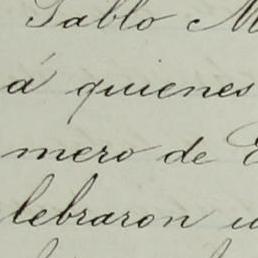 Pablo M
á quienes
mero de E
lebraron u